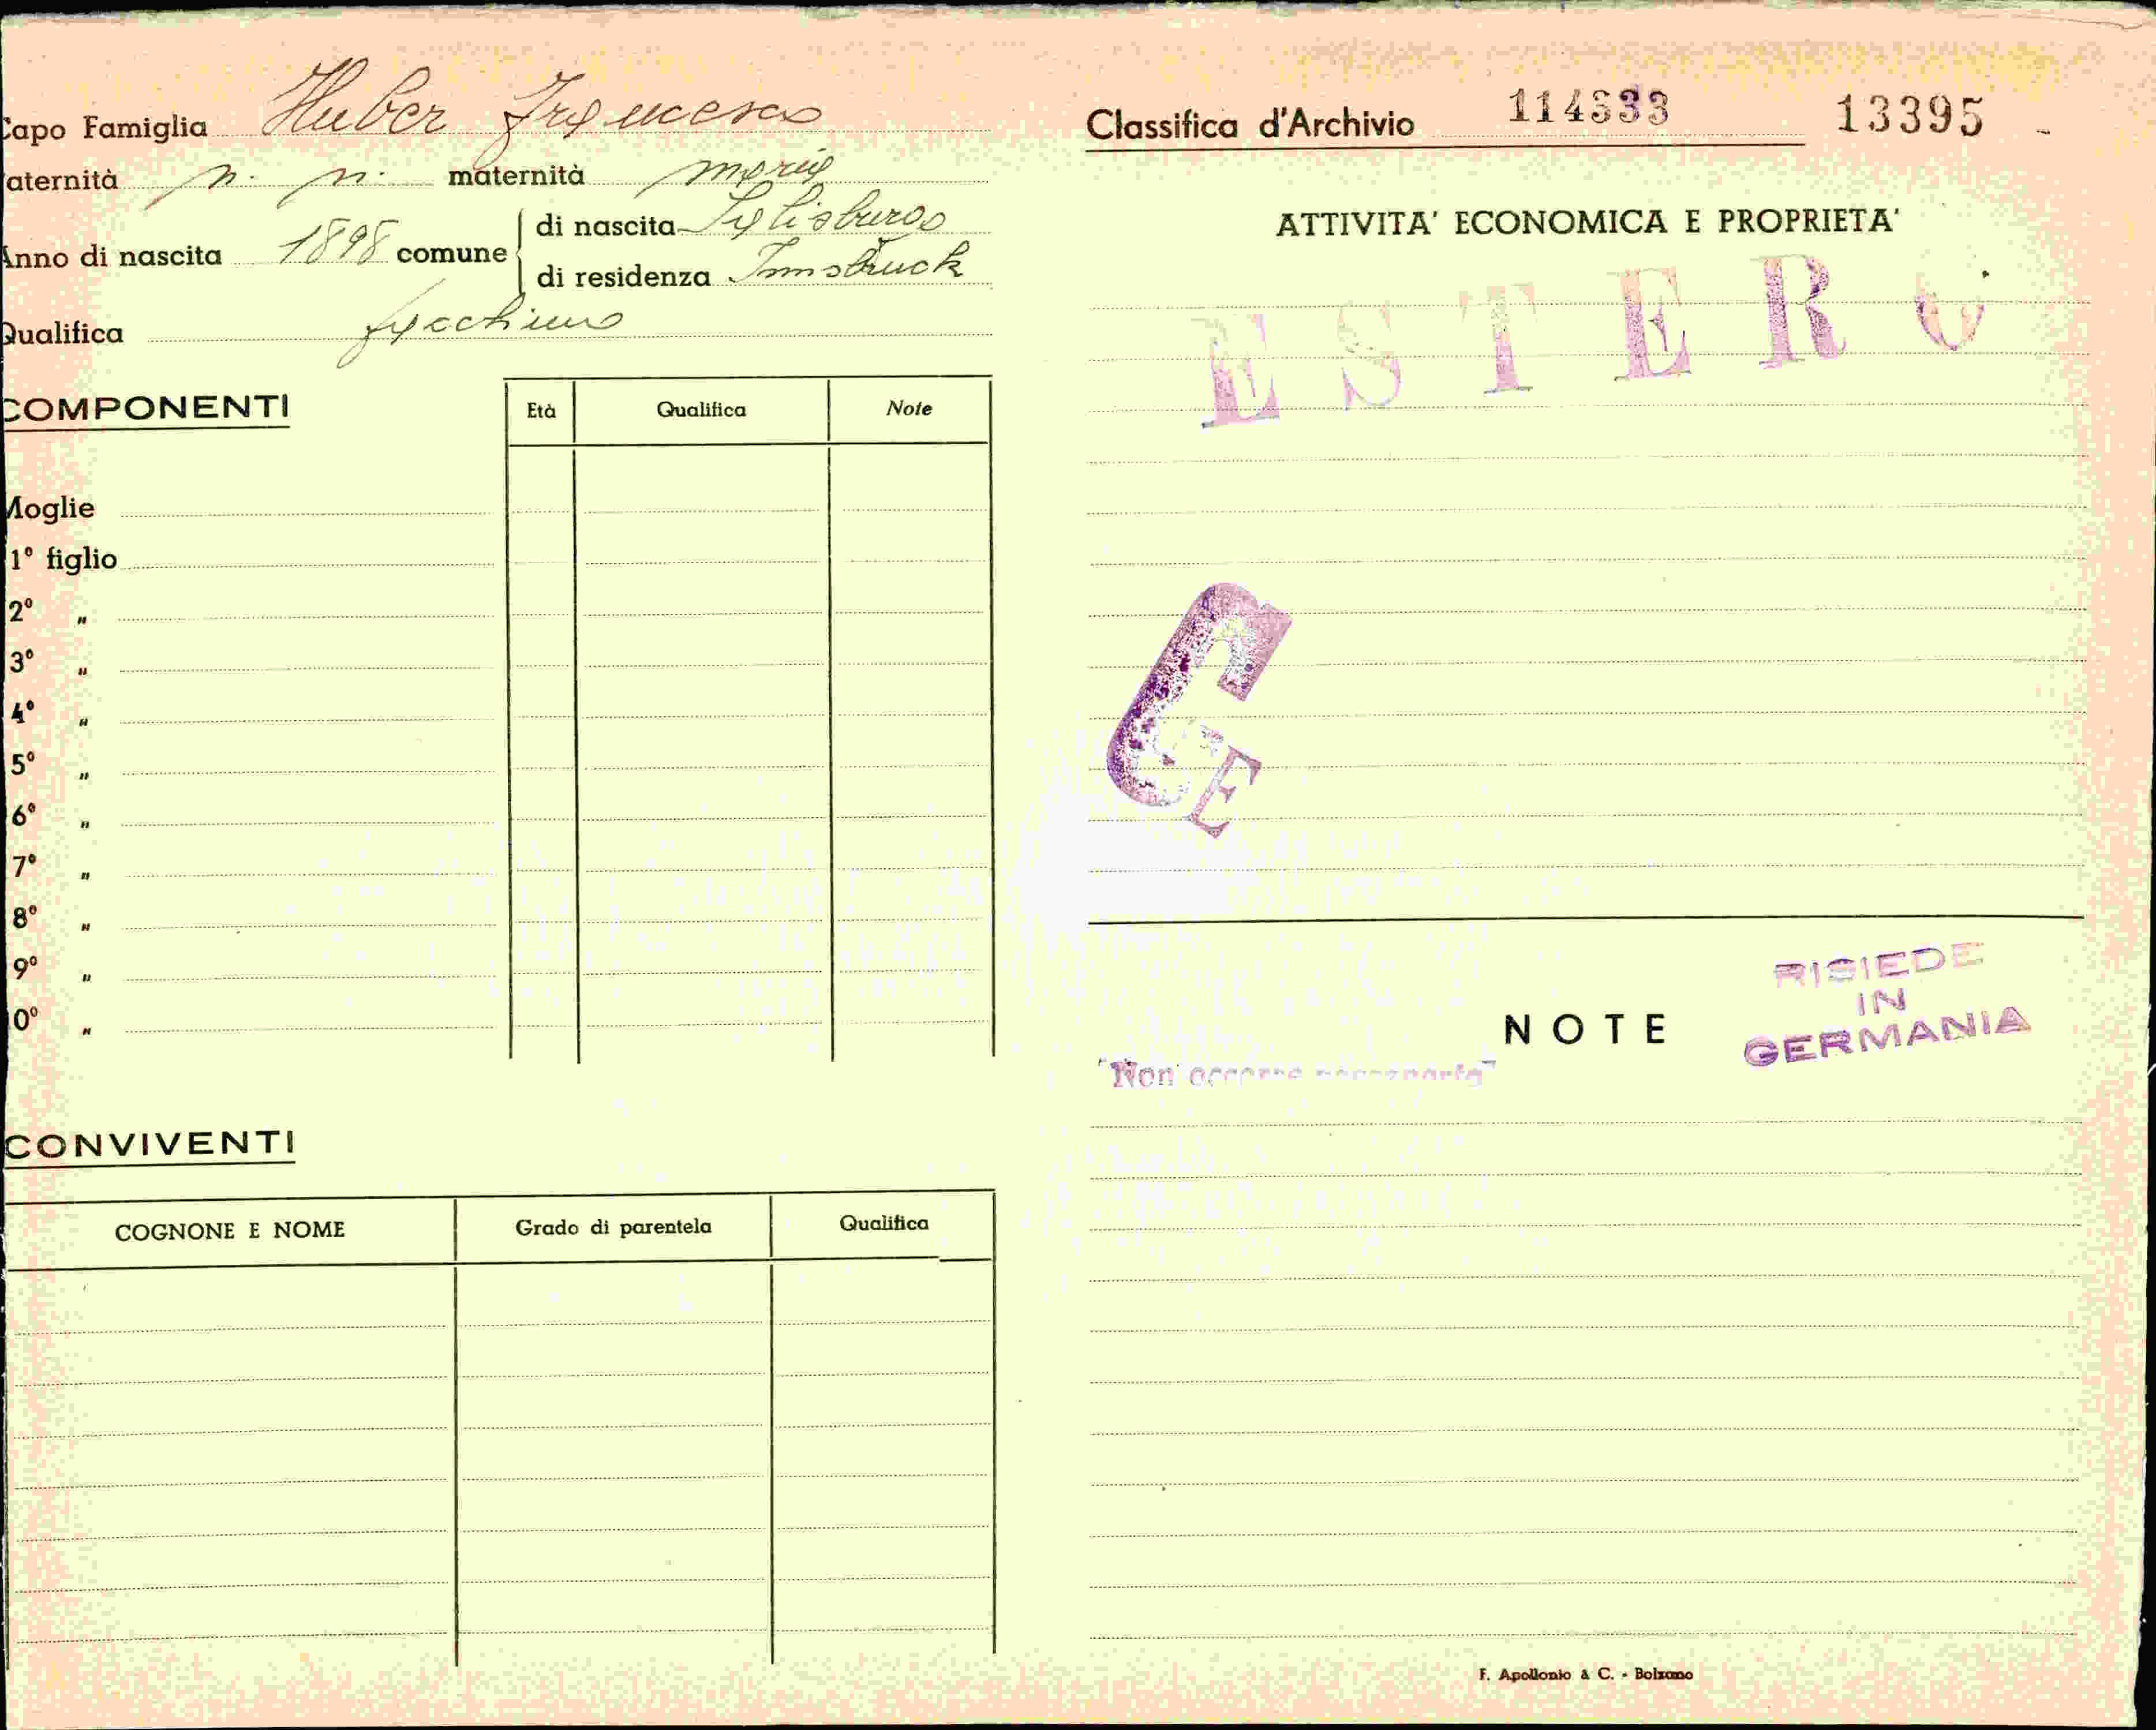 Capo Famiglia Huber Francesco
aternità n. n. maternità Maria
Anno di nascita 1898 comune di nascita Salisburgo
di residenza Innsbruck
Qualifica facchino
COMPONENTI Età Qualifica Note
Moglie
1° figlio
2° "
3° "
4° "
5° "
6° "
7° "
8° "
9° "
0° "
CONVIVENTI
COGNONE E NOME Grado di parentela Qualifica
Classifica d'Archivio 114333 13395 -
ATTIVITA' ECONOMICA E PROPRIETA'
ESTERO
C
E
NOTE
RISIEDE
IN
GERMANIA
"Non occorre
F. Apollonio & C. - Bolzano